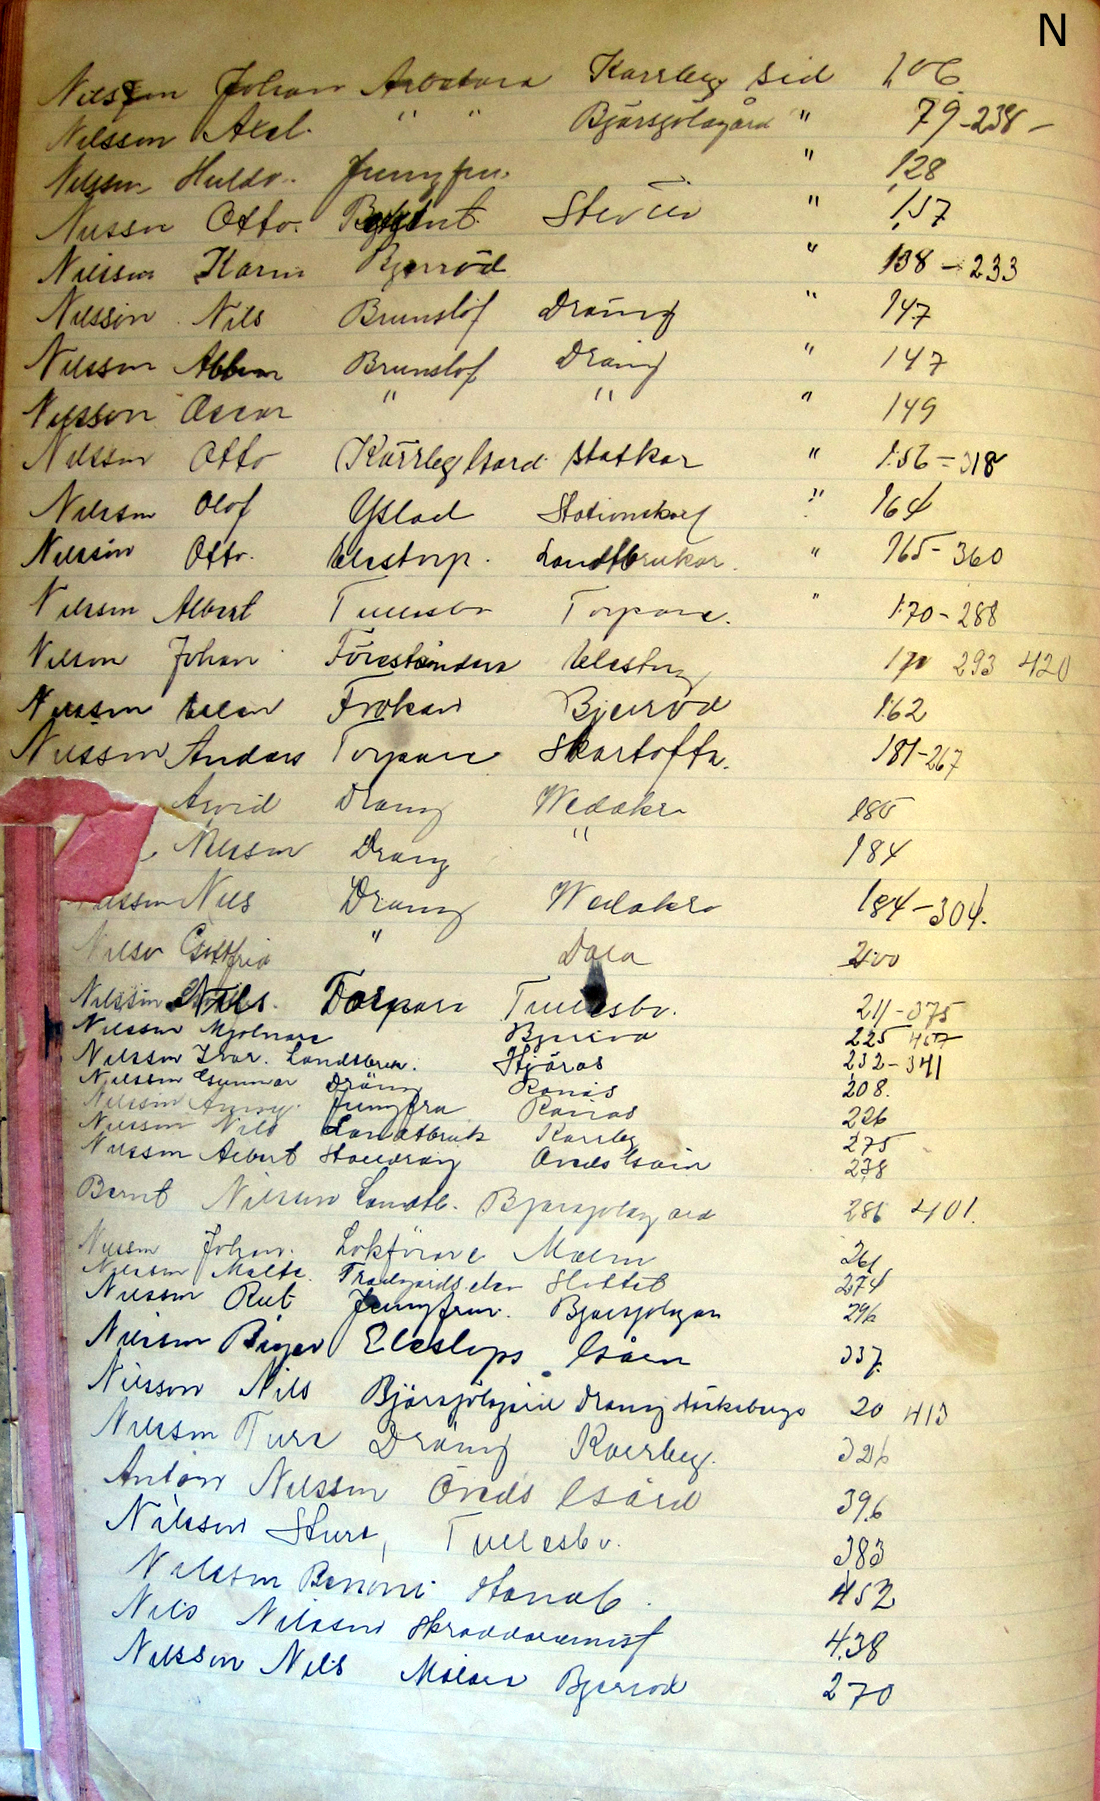 N
Nilsson Johan Arbetare Karrberg Sid 106
Nilsson Axel. " " Bjärsjölagård " 79-238-
Nilsson Huldv. Jungfru. " 128
Nilsson Otto. " 157
Nilsson Karin Bjerröd " 138-233
Nilsson Nils Brunslöf Dräng " 147
Nilsson Brunslof Dräng " 147
Nilsson Oscar " " " 149
Nilsson Otto Gård statkar " 156-318
Nilsson Olof Ystad " 164
Nilsson Otto. Elestorp. Landtbrukar. " 165-360
Nilsson Albert Tullesbo Torpare. " 170-288
Nilson Johan Föreståndare 293 420
Nilsson Elen Froken Bjerröd 162
Nilsson Anders Torpare Skartofta. 181-267
Arvid Drang Wedakra 185
Nilsson Drang " 184
Nilsson Nils Drang Wedakra 184-304.
Gottfrid " Dala 200
Nilsson Nils. Torpare Tullesbo. 211-375
Nilsson Mjolnare Bjerrod 225 457
Nilsson Ivar. Landtbru. 232-341
Nilsson Gunnar Dräng Ranås 208.
Nilsson Anny. Jungfru Ranås 226
Nilsson Nils Landtbruk Karrbg 275
Nilsson Albert Stalldrang Öveds 238
Bernt Nilsson Landtb. Bjarsjolagard 286 401.
Nilssn Johan. Lokförare Malm 261
Nilsson Malte. Slottet 274
Nilsson Rut Jungfrur. Bjarsjolagar 296
Nilsson Birger Elestops Gåen 337.
Nilsson Nils Bjärsjölagård Drang 20 413
Nilsson Ture Dräng Karrberg. 326
Anton Nilsson Öveds Gård 396
Nilsson Sture, Tullesbo. 383
Nilsson Benoni 452
Nils Nilsson 438
Nilsson Nils Målare Bjerrod 270